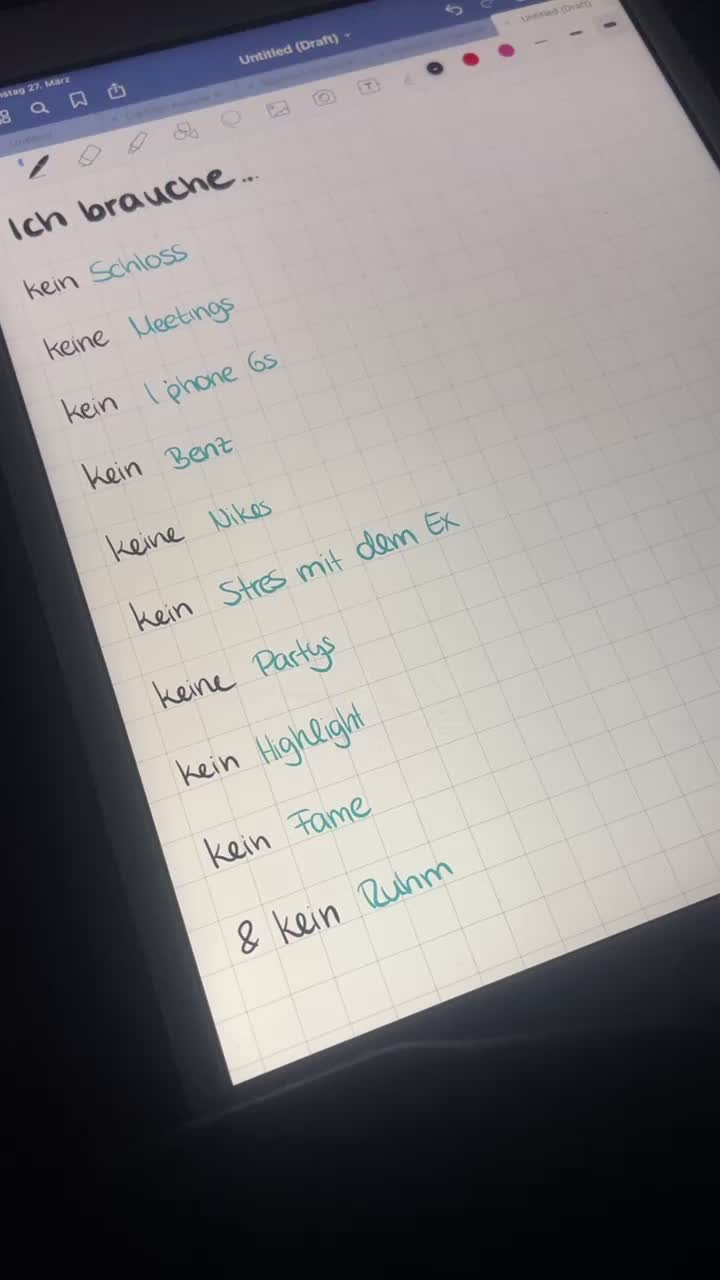 nstag 27. März
Untitled (Draft)
Untitled (Draft)
Untitled
Ich brauche...
kein Schloss
keine Meetings
kein Iphone 6s
kein Benz
keine Nikes
kein Stres mit dem Ex
keine Partys
kein Highlight
kein Fame
& kein Ruhm